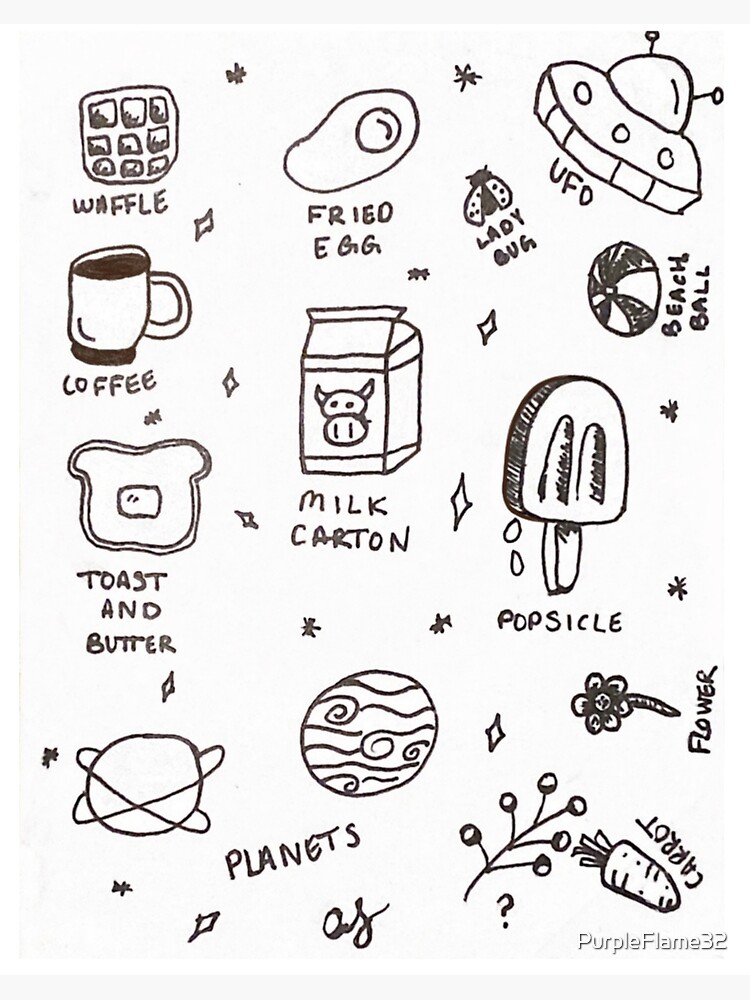 WAFFLE
FRIED
EGG
LADY
BUG
UFO
BEACH
BALL
COFFEE
MILK
CARTON
TOAST
AND
BUTTER
POPSICLE
FLOWER
PLANETS
CARROT
?
PurpleFlame32